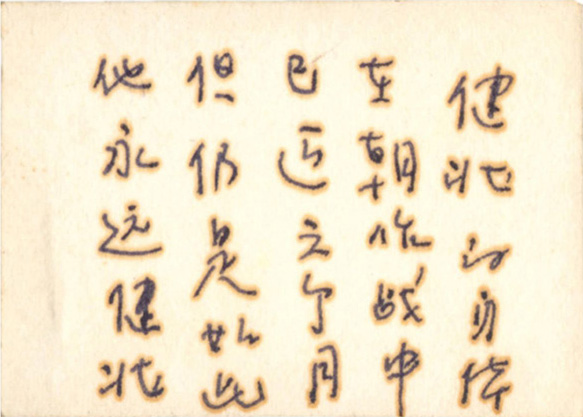 健壮的身体
在朝作战中
已近六个月
但仍是如此
他永远健壮